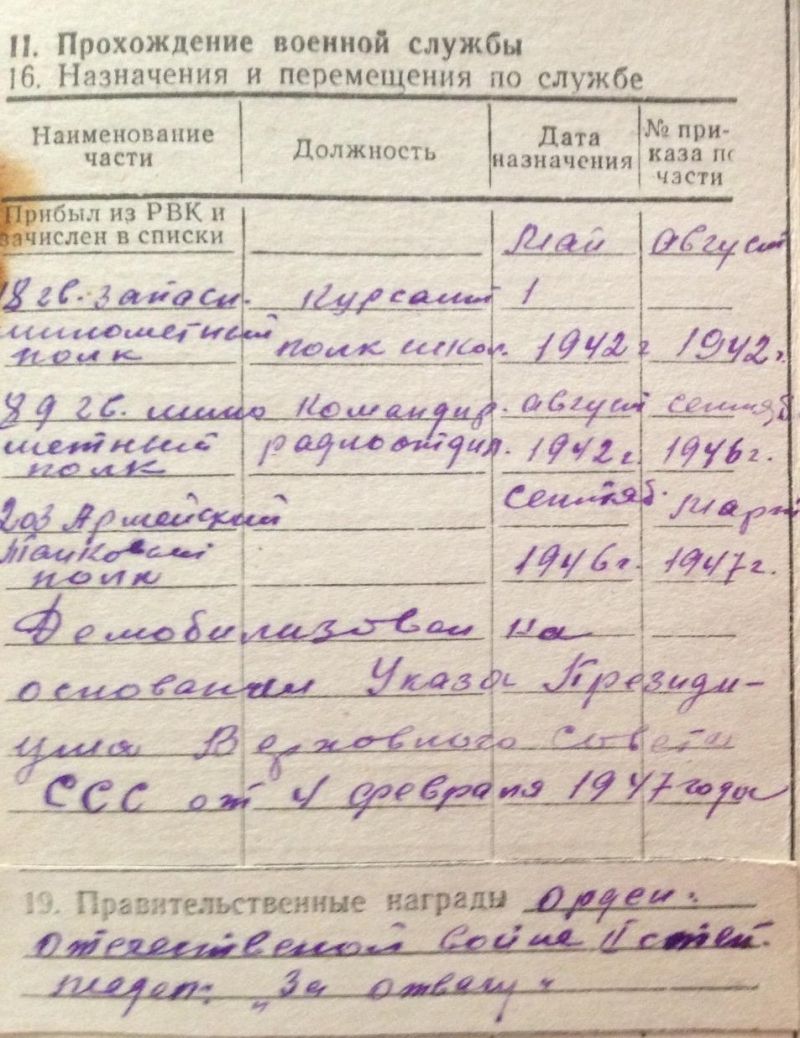 II. Прохождение военной службы
16. Назначения и перемещения по службе
Наименование части Должность Дата назначения № при-каза по части
Прибыл из РВК и
зачислен в списки Май Август
18 гв. запасн. Курсант 1
минометный
полк полк школ. 1942 г 1942 г.
89 гв. мино Командир. август сентяб
метный радиоотдил. 1942 г. 1946 г.
полк
203 Армейский сентяб. Март
Танковый 1946 г. 1947 г.
полк
Демобилизован на
основании Указа Президи-
ума Верховного Совета
ССС от 4 февраля 1947 года
19. Правительственные награды орден:
отечественой войне II степ.
медал: „За отвагу"